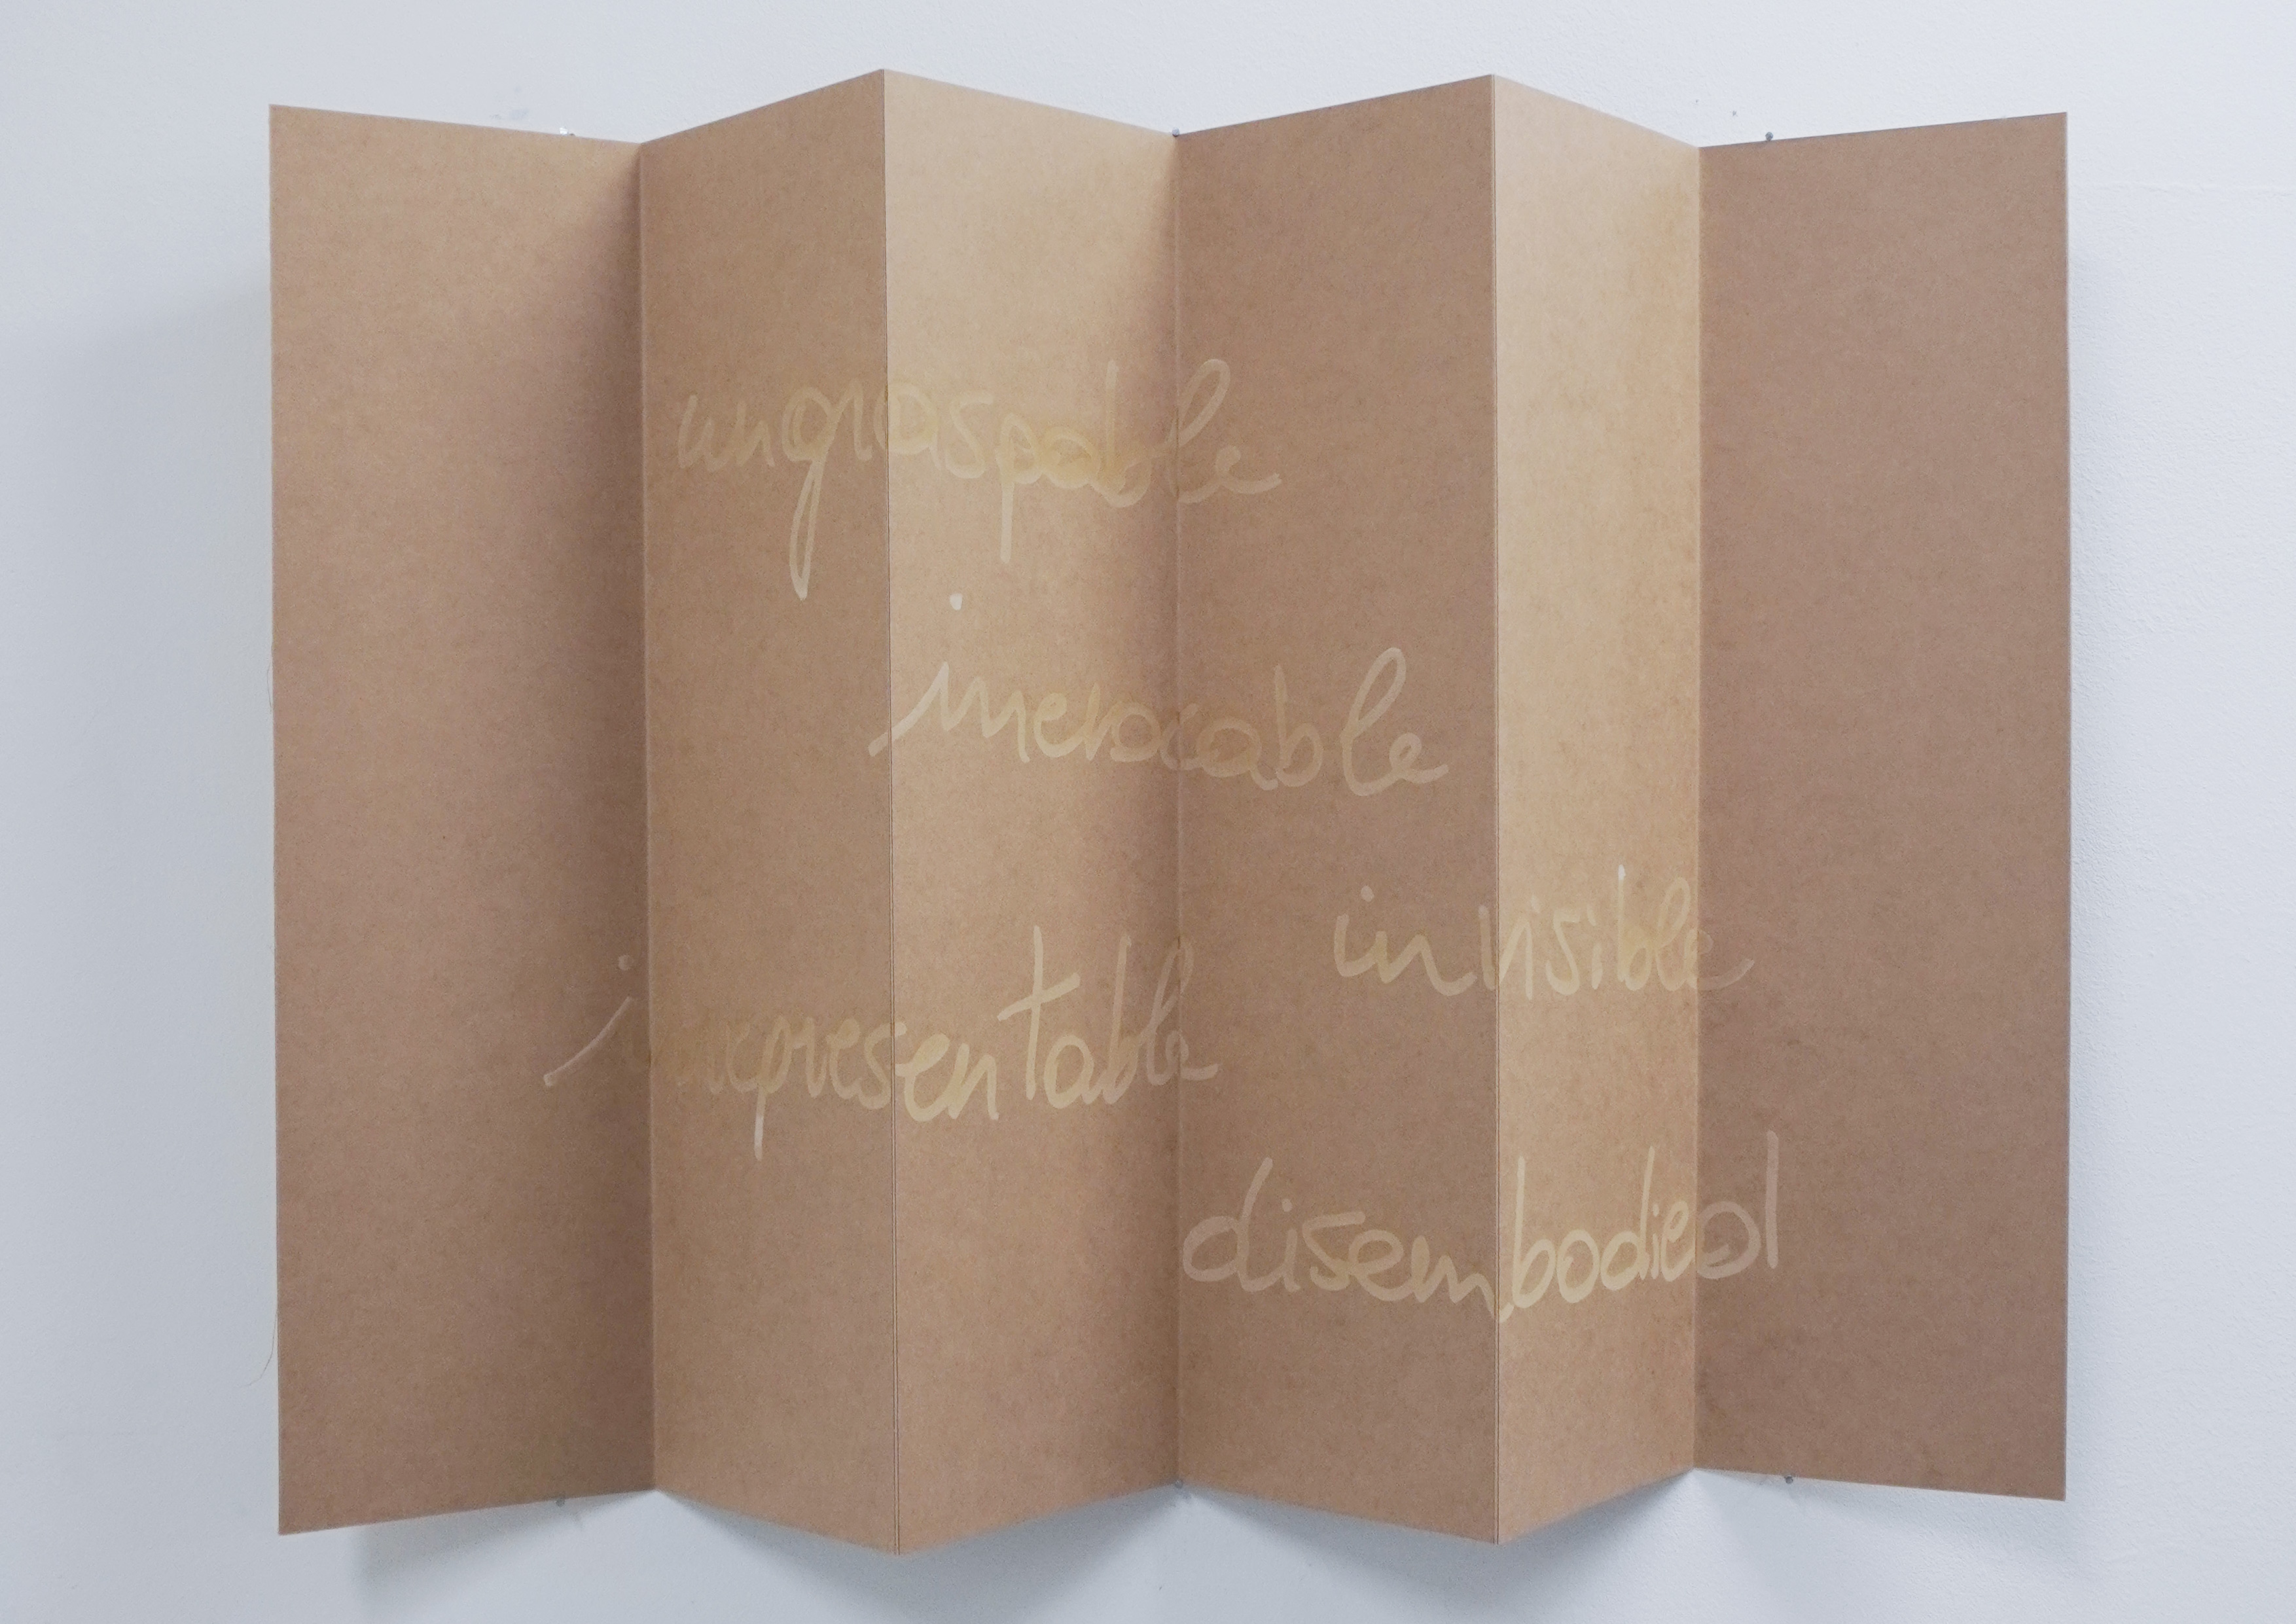 ungraspable
irrevocable
invisible
irrepresentable
disembodied